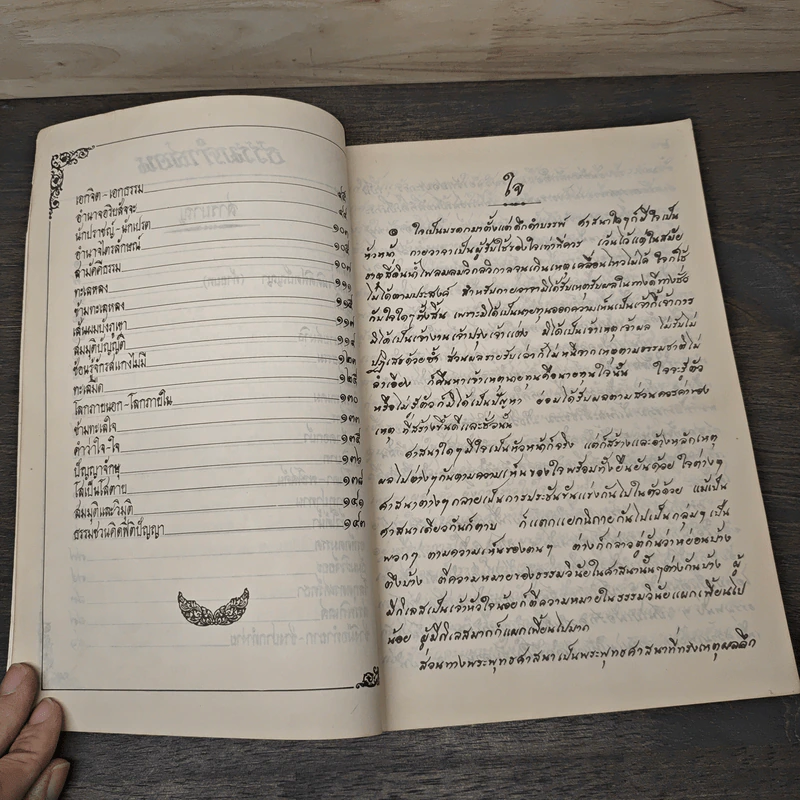 เอกจิต-เอกธรรม ๙๕
อำนาจอริยสัจจะ ๙๙
นักปราชญ์-นักเปรต ๑๐๓
อำนาจไตรลักษณ์ ๑๐๕
สามัคคีธรรม ๑๐๗
ทะเลหลง ๑๑๑
ข้ามทะเลหลง ๑๑๕
เส้นผมบังภูเขา ๑๑๗
สมมุติบัญญัติ ๑๑๙
ซ้อนรู้จักรส่แกงไม่มี ๑๒๓
ทะเลมืด ๑๒๕
โลกภายนอก-โลกภายใน ๑๓๐
ข้ามทะเลใจ ๑๓๓
คำว่าใจ-ใจ ๑๓๕
ปัญญาจักษุ ๑๓๖
โสเป็นโสตาย ๑๓๘
สมมุติและวิมุติ ๑๔๑
ธรรมชวนคิดพิติปัญญา ๑๔๓
ใจ
๑ ใจเป็นมรดกมาตั้งแต่ดึกดำบรรพ์ ศาสนาใดๆก็มีใจเป็น
หัวหน้า กายวาจาเป็นผู้รับใช้ของใจเท่าที่ควร เว้นไว้แต่ในสมัย
ธาตุสี่ดินน้ำไฟลมวิกลวิการจนเกินเหตุเคลื่อนไหวไม่ได้ ใจก็ใช้
ไม่ได้ตามประสงค์ สำหรับกายวาจามิได้รับเหตุรับผลในทางดีทางชั่ว
กับใจใดๆทั้งสิ้น เพราะมิได้เป็นนายทุนออกความเห็นเป็นเจ้ากี้เจ้าการ
มิได้เป็นเจ้างานเจ้าปรุงเจ้าแต่ง มิได้เป็นเจ้าเหตุเจ้าผล ไม่รับไม่
ปฏิเสธด้วยซ้ำ ส่วนผลรายรับเล่าก็ไม่หนีจากเหตุตามธรรมชาติไม่
ลำเอียง ก็คืนหาเจ้าเหตุนายทุนคือนายทุนใจนั้น ใจจะรู้ตัว
หรือไม่รู้ตัวก็มิได้เป็นปัญหา ย่อมได้รับผลตามส่วนควรค่าของ
เหตุ ที่สร้างขึ้นดีและชั่วนั้น
ศาสนาใดๆมีใจเป็นหัวหน้าก็จริง แต่ก็สร้างและอ้างหลักเหตุ
ผลไปต่างๆกันตามความเห็นของใจพร้อมทั้งยืนยันด้วย ใจต่างๆ
ศาสนาต่างๆกลายเป็นการประชันขันแข่งกันไปในตัวด้วย แม้เป็น
ศาสนาเดียวกันก็ตาม ก็แตกแยกนิกายกันไปเป็นกลุ่มๆเป็น
พวกๆ ตามความเห็นของตนๆ ต่างก็กล่าวตู่กันว่าหย่อนบ้าง
ตึงบ้าง ตีความหมายของธรรมวินัยในศาสนานั้นๆต่างกันบ้าง ผู้
มีกิเลสเป็นเจ้าหัวใจน้อยก็ตีความหมายในธรรมวินัยแผกเพี้ยนไป
น้อย ผู้มีกิเลสมากก็แผกเพี้ยนไปมาก
ส่วนทางพระพุทธศาสนาเป็นพระพุทธศาสนาที่ทรงเหตุผลลึก